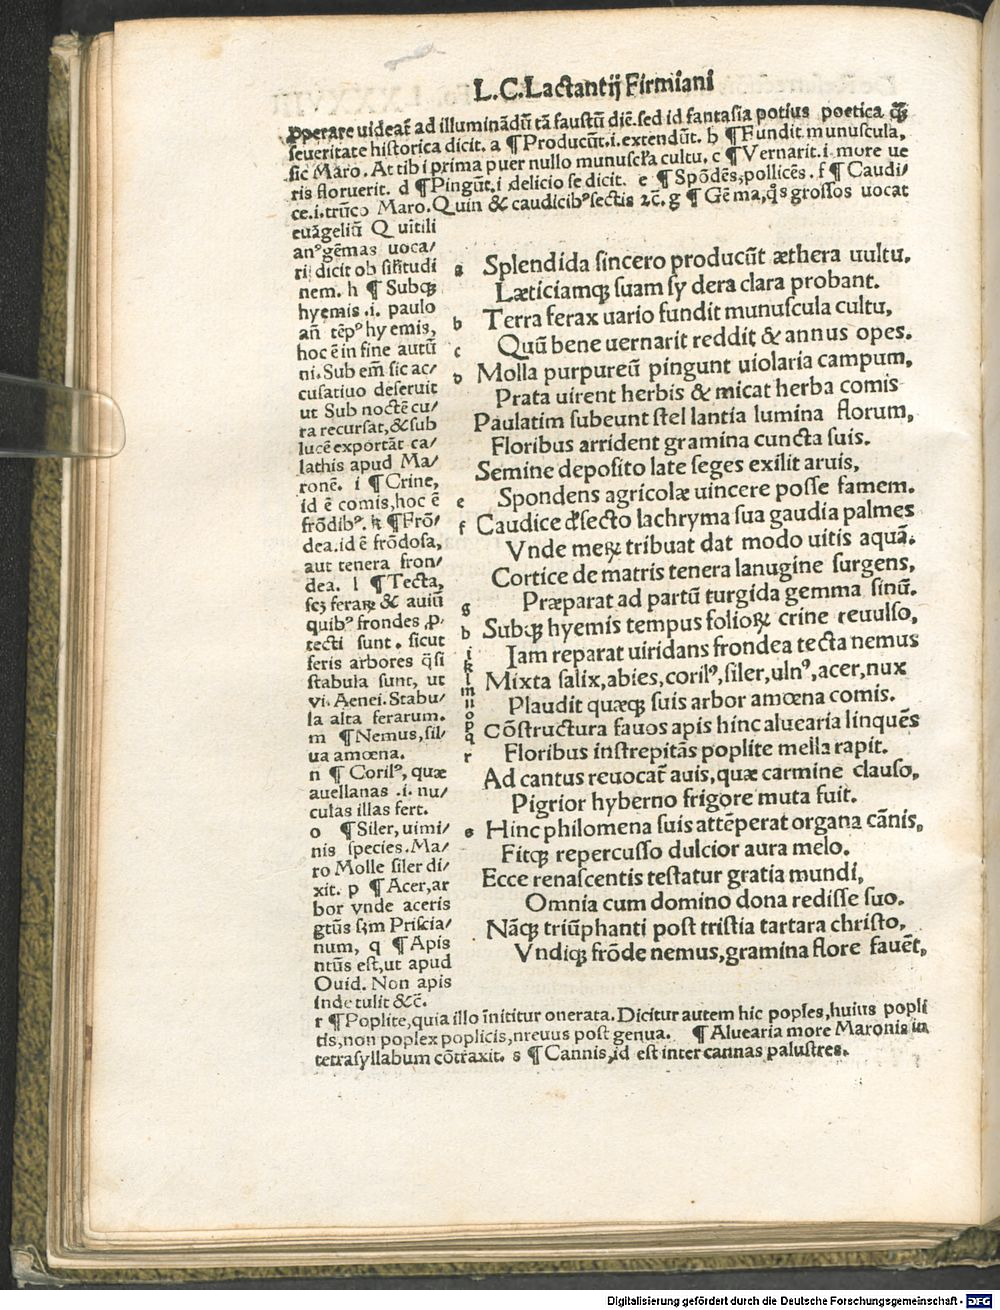 L.C.Lactantij Firmiani
ꝓperare uideat̃ ad illuminãdũ tã faustũ diẽ.sed id fantasia potius poetica q̃ꝫ
seueritate historica dicit. a ¶Producũt.i.extendũt. b ¶Fundit munuscula,
sic Maro. At tibi prima puer nullo munuscl̃a cultu. c ¶Vernarit.i.more ue
ris floruerit. d ¶Pingũt.i delicio se dicit. e ¶Spõdẽs,pollicẽs. f ¶Caudi/
ce.i.trũco Maro.Quin & caudicibꝰ sectis ⁊c̃. g ¶Gẽma,q̃s grossos uocat
euãgeliũ Quĩtili
anꝰ gẽmas uoca/
ri dicit ob sil̃itudi
nem. h ¶Subqꝫ
hyemis .i. paulo
añ tẽpꝰ hyemis,
hoc ẽ in fine autũ
ni.Sub em̃ sic ac/
cusatiuo deseruit
ut Sub noctẽ cu/
ra recursat,&sub
lucẽ exportãt ca/
lathis apud Ma/
ronẽ. i ¶Crine,
id ẽ comis,hoc ẽ
frõdibꝰ. k ¶Frõ/
dea.id ẽ frõdosa,
aut tenera fron/
dea. l ¶Tecta,
scꝫ feraꝝ & auiũ
quibꝰ frondes ꝓ/
tecti sunt. sicut
feris arbores q̃si
stabula sunt, ut
vi. Aenei. Stabu/
la alta ferarum.
m ¶Nemus,sil/
ua amœna.
n ¶Corilꝰ, quæ
auellanas .i. nu/
culas illas fert.
o ¶Siler, uimi/
nis species.Ma/
ro Molle siler di/
xit. p ¶Acer,ar
bor vnde aceris
gtũs sꝫm Priscia/
num, q ¶Apis
ntũs est,ut apud
Ouid. Non apis
inde tulit &c̃.
a Splendida sincero producũt æthera uultu,
Læticiamqꝫ suam sydera clara probant.
b Terra ferax uario fundit munuscula cultu,
c Quũ bene uernarit reddit & annus opes.
d Molla purpureũ pingunt uiolaria campum,
Prata uirent herbis & micat herba comis
Paulatim subeunt stellantia lumina florum,
Floribus arrident gramina cuncta suis.
Semine deposito late seges exilit aruis,
e Spondens agricolæ uincere posse famem.
f Caudice d̃secto lachryma sua gaudia palmes
Vnde meꝝ tribuat dat modo uitis aquã.
Cortice de matris tenera lanugine surgens,
g Præparat ad partũ turgida gemma sinũ.
h Subqꝫ hyemis tempus folioꝝ crine reuulso,
i k l Iam reparat uiridans frondea tecta nemus
m n Mixta salix,abies,corilꝰ,siler,ulnꝰ,acer,nux
o p Plaudit quæqꝫ suis arbor amœna comis.
q Cõstructura fauos apis hinc aluearia linquẽs
r Floribus instrepitãs poplite mella rapit.
Ad cantus reuocat̃ auis,quæ carmine clauso,
Pigrior hyberno frigore muta fuit.
s Hinc philomena suis attẽperat organa cãnis,
Fitqꝫ repercusso dulcior aura melo.
Ecce renascentis testatur gratia mundi,
Omnia cum domino dona redisse suo.
Nãcqꝫ triũphanti post tristia tartara christo,
Vndiqꝫ frõde nemus,gramina flore fauẽt,
r ¶Poplite,quia illo ĩnititur onerata.Dicitur autem hic poples,huius popli
tis,non poplex poplicis,nreuus post genua. ¶Aluearia more Maronis in
tetrasyllabum cõtraxit. s ¶Cannis,id est inter cannas palustres.
Digitalisierung gefördert durch die Deutsche Forschungsgemeinschaft - DFG